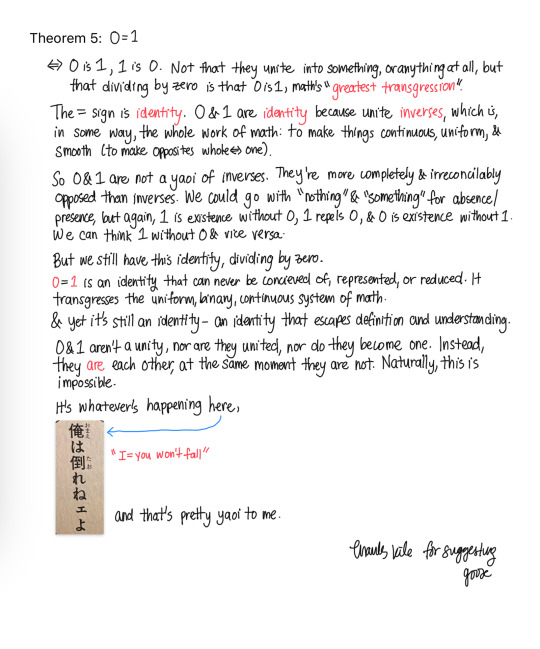 Theorem 5: 0=1
⇔ 0 is 1, 1 is 0. Not that they unite into something, or anything at all, but
that dividing by zero is that 0 is 1, math's "greatest transgression".
The = sign is identity. 0 & 1 are identity because unite inverses, which is,
in some way, the whole work of math: to make things continuous, uniform, &
smooth (to make opposites whole ⇔ one).
So 0 & 1 are not a yaoi of inverses. They're more completely & irreconcilably
opposed than inverses. We could go with "nothing" & "something" for absence/
presence, but again, 1 is existence without 0, 1 repels 0, & 0 is existence without 1.
We can think 1 without 0 & vice versa.
But we still have this identity, dividing by zero.
0=1 is an identity that can never be concieved of, represented, or reduced. It
transgresses the uniform, binary, continuous system of math.
& yet it's still an identity – an identity that escapes definition and understanding.
0 & 1 aren't a unity, nor are they united, nor do they become one. Instead,
they are each other, at the same moment they are not. Naturally, this is
impossible.
It's whatever's happening here,
俺は倒れねェよ
おまえ
たお
"I=you won't fall"
and that's pretty yaoi to me.
for suggesting
goose